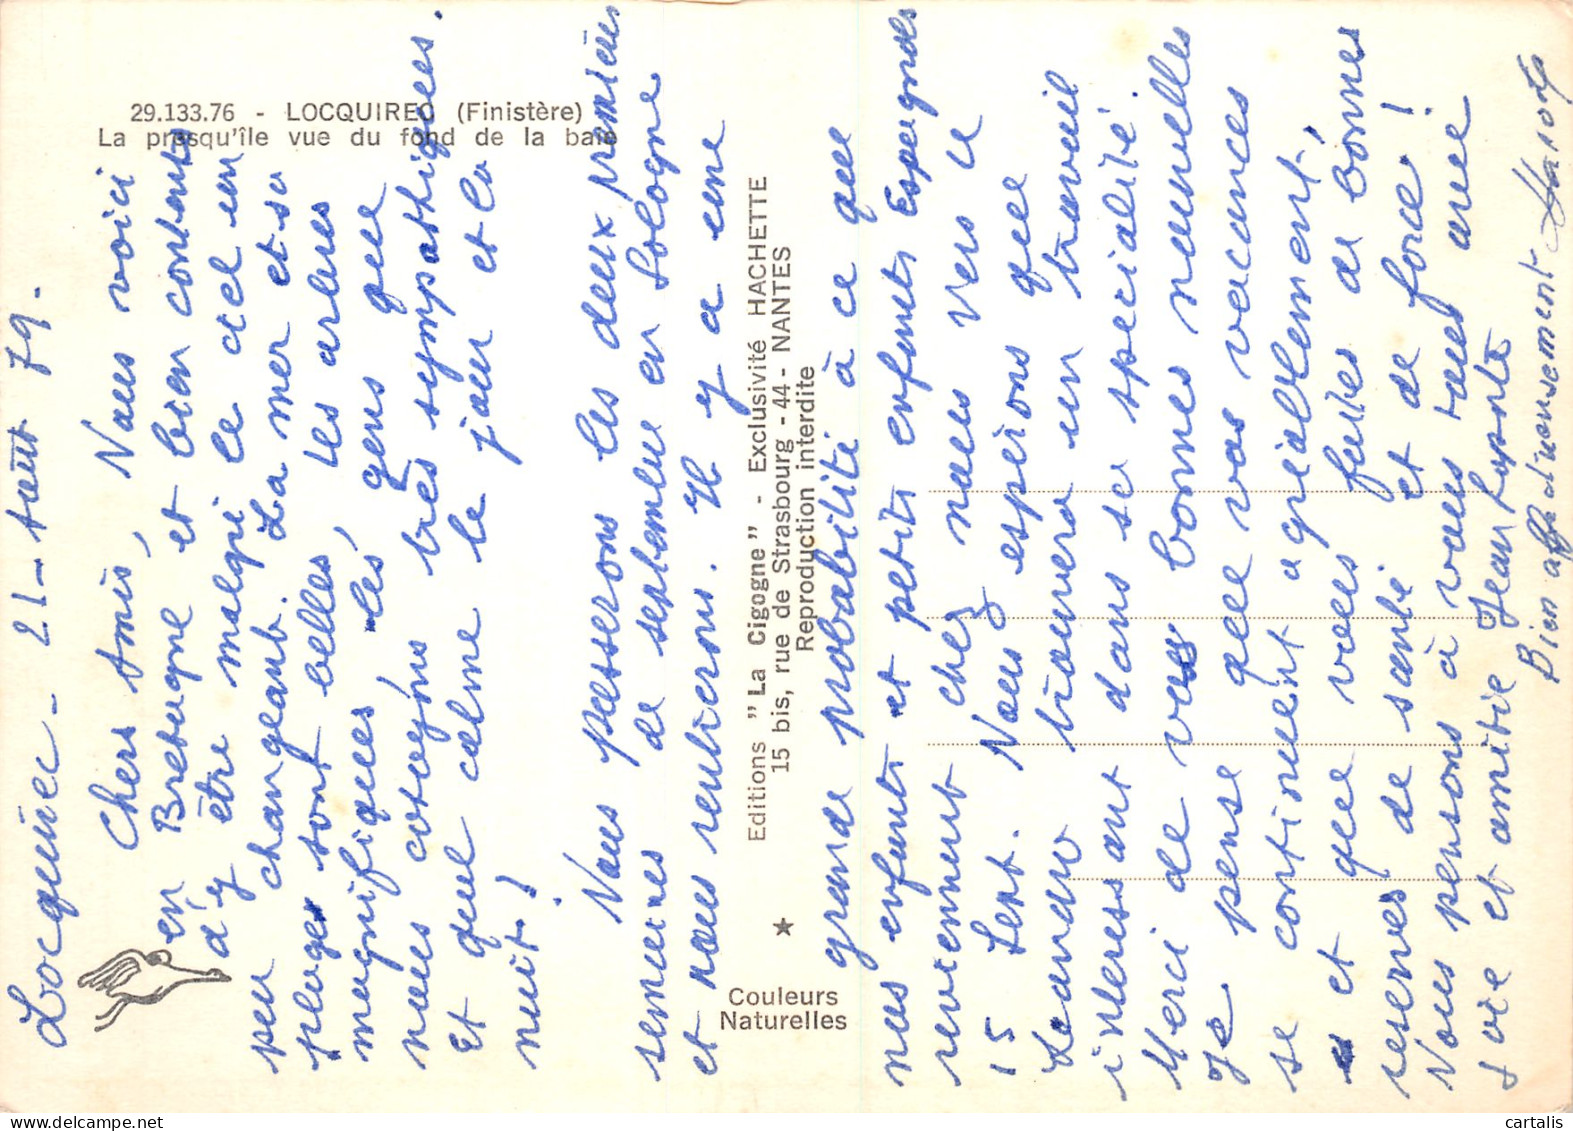 29.133.76 - LOCQUIREC (Finistère)
La presqu'île vue du fond de la baie
Locquirec - 21 - Août 79.
Chers Amis, Nous voici
en Bretagne et bien contents
d'y être malgré le ciel un
peu changeant. La mer et sa
plage sont belles, les arbres
magnifiques, les gens que
nous cotoyons très sympathiques.
Et quel calme le jour et la
nuit!
Nous passerons les deux premières
semaines de septembre en Sologne
et nous rentrerons. Il y a une
Editions "La Cigogne" - Exclusivité HACHETTE
15 bis, rue de Strasbourg - 44 - NANTES
Reproduction interdite
Couleurs
Naturelles
grande probabilité à ce que
nos enfants et petits enfants Espagnols
reviennent chez nous vers le
15 Sept. Nous espérons que
Leandro trouvera un travail
interessant dans sa spécialité.
Merci de vos bonnes nouvelles
Je pense que vos vacances
se continuent agréablement
et que vous faites de bonnes
reserves de santé et de force!
Nous pensons à vous tous avec
joie et amitié Jean
Bien affectueusement
cartalis.com